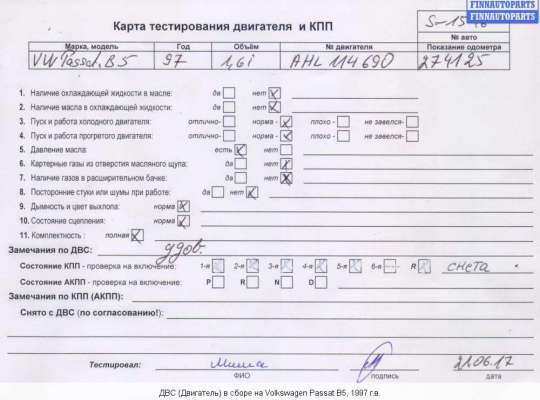 FINNAUTOPARTS
FINNAUTOPARTS
Карта тестирования двигателя и КПП
№ авто
Марка, модель Год Объём № двигателя Показание одометра
VW Passat B5 97 1,6i AHL 114690 274125
1. Наличие охлаждающей жидкости в масле: да нет
2. Наличие масла в охлаждающей жидкости: да нет
3. Пуск и работа холодного двигателя: отлично- норма - плохо - не завелся-
4. Пуск и работа прогретого двигателя: отлично- норма - плохо - не завелся-
5. Давление масла: есть нет
6. Картерные газы из отверстия масляного щупа: да нет
7. Наличие газов в расширительном бачке: да нет
8. Посторонние стуки или шумы при работе: да нет
9. Дымность и цвет выхлопа: норма
10. Состояние сцепления: норма
11. Комплектность : полная
Замечания по ДВС: удов.
Состояние КПП - проверка на включение: 1-я 2-я 3-я 4-я 5-я 6-я R снета
Состояние АКПП - проверка на включение: P R N D
Замечания по КПП (АКПП):
Снято с ДВС (по согласованию!):
Тестировал: Миша 21.06.17
ФИО подпись дата
ДВС (Двигатель) в сборе на Volkswagen Passat B5, 1997 г.в.